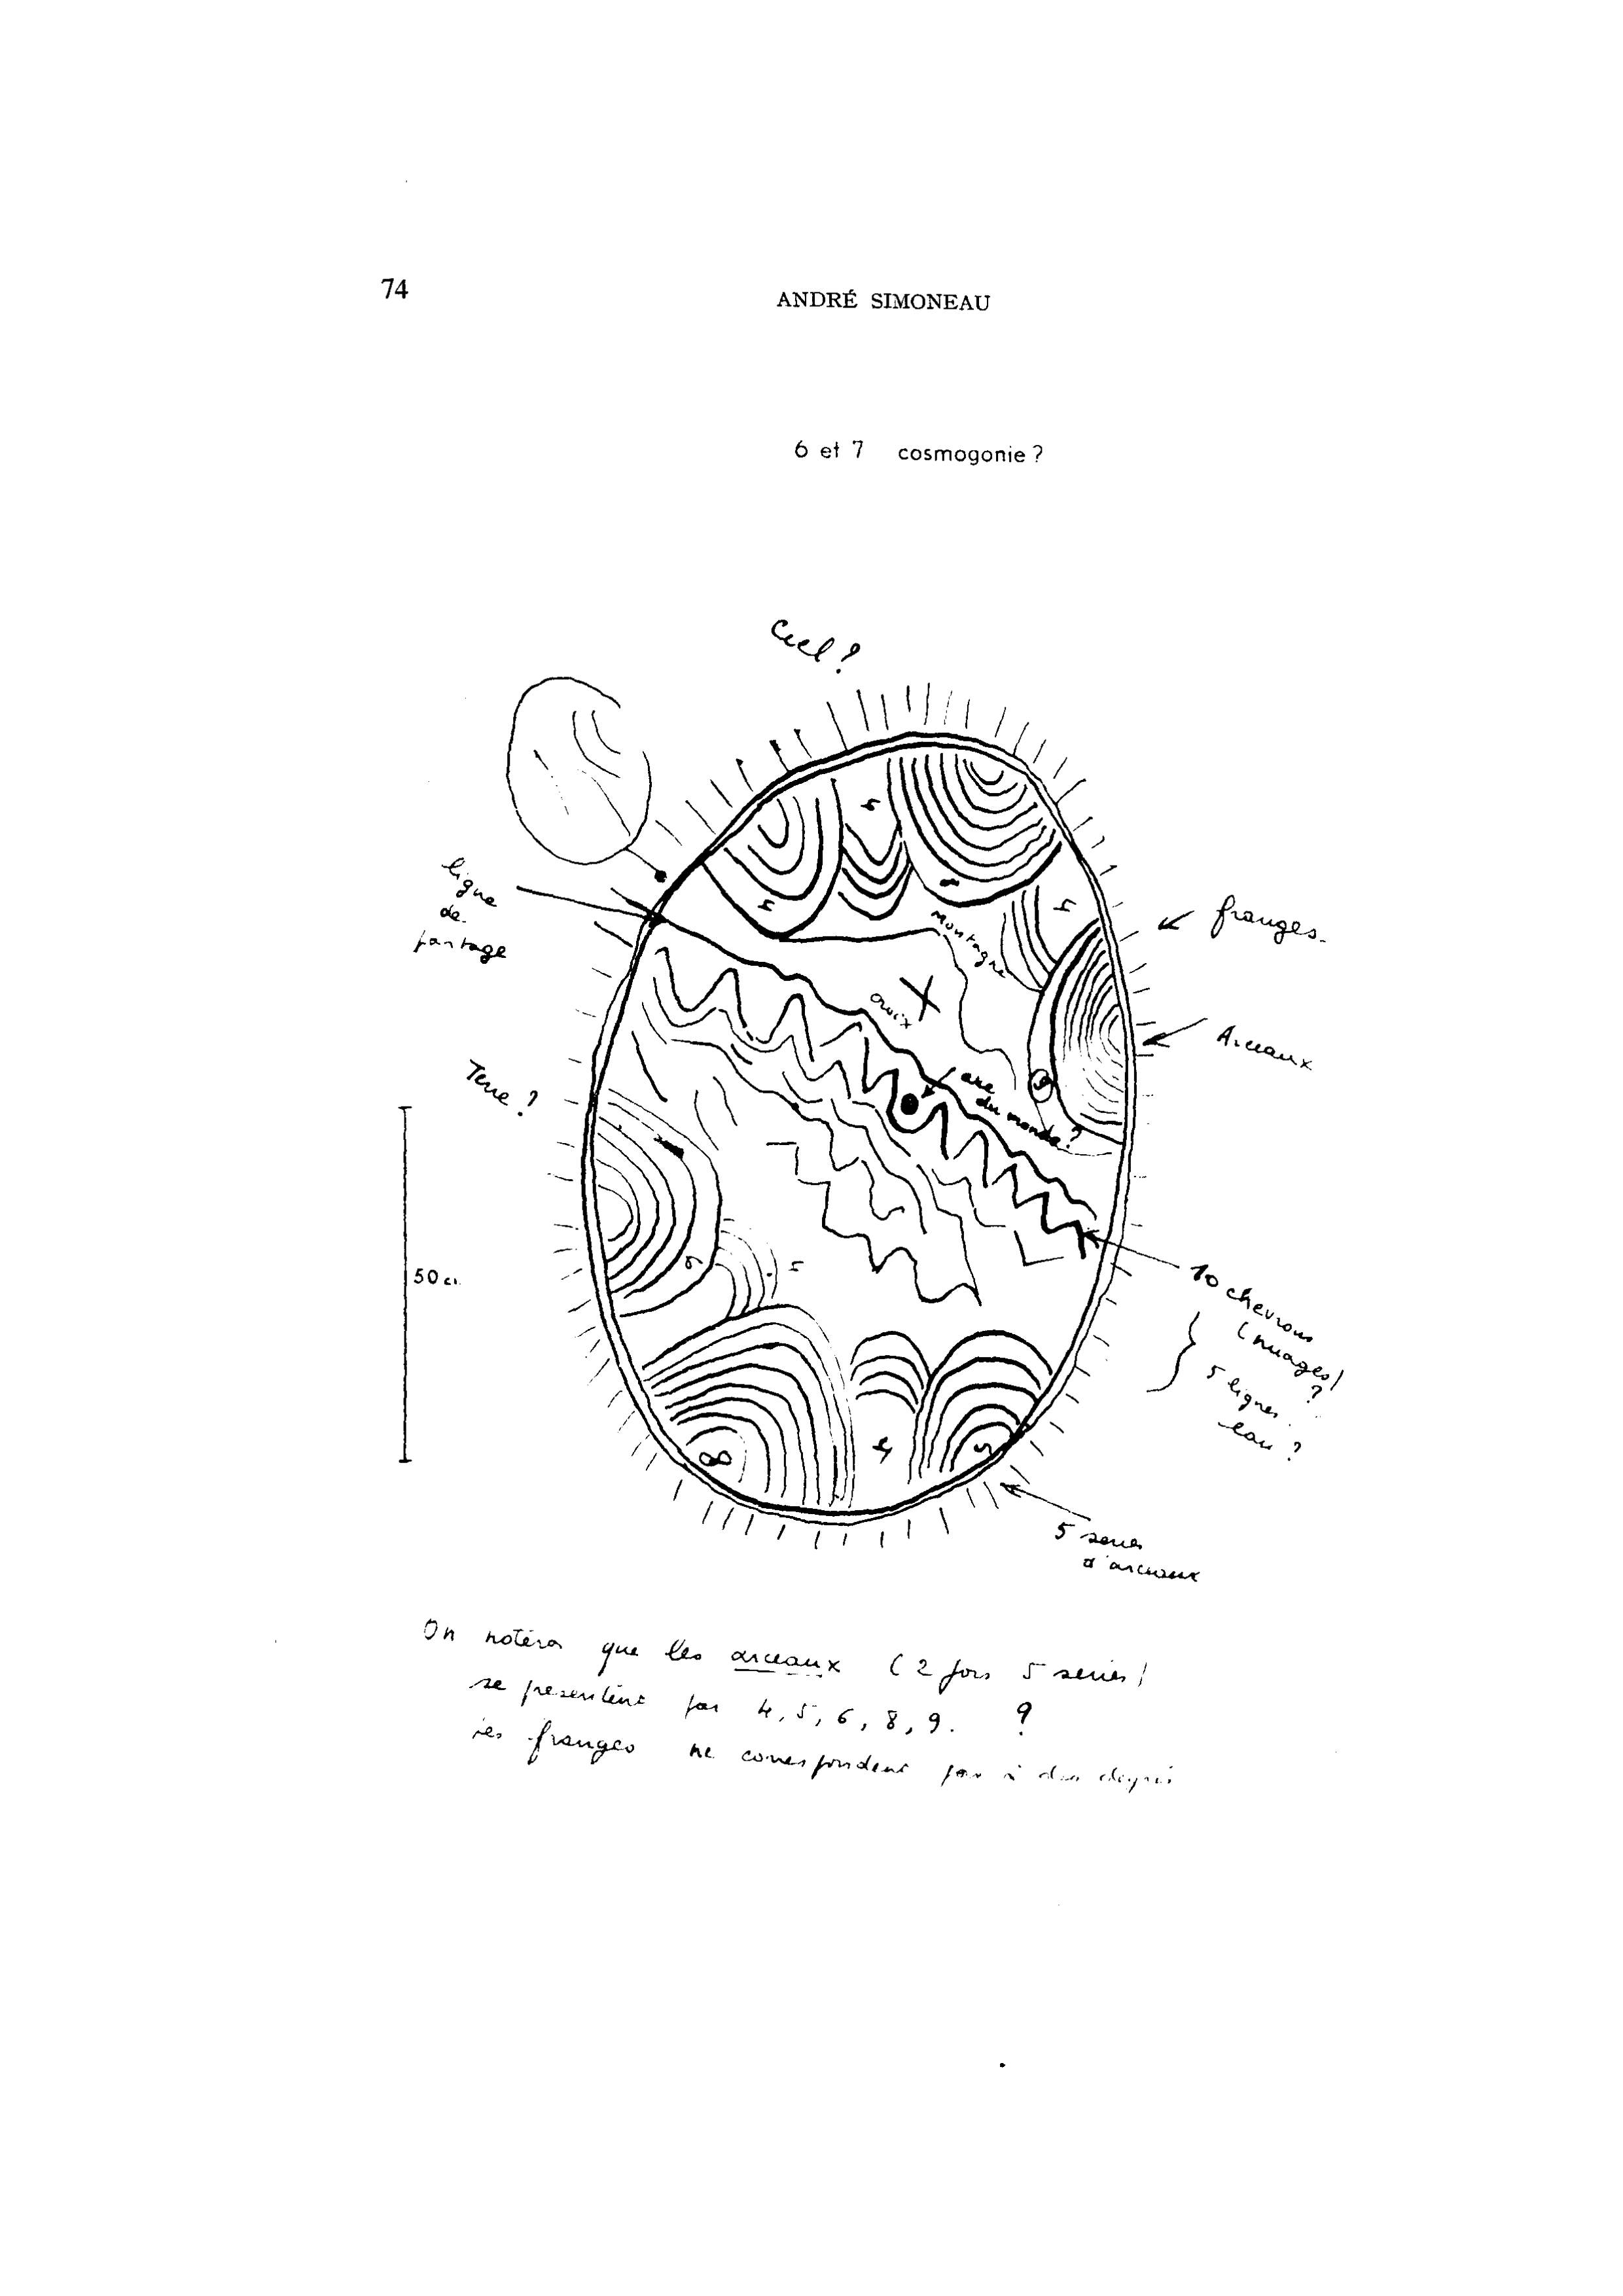 74
ANDRÉ SIMONEAU
6 et 7 cosmogonie ?
Ciel ?
ligne
de
partage
franges
Montagne
croix
Arceaux
axe
du monde ?
Terre ?
50 c
10 chevrons
(nuages)
?
5 lignes
eau ?
4
5
5
5
9
6
5
8
4
5
5 series
d'arceaux
On notera que les arceaux (2 fois 5 series)
se presentent par 4, 5, 6, 8, 9. ?
les franges ne correspondent pas à des degrés